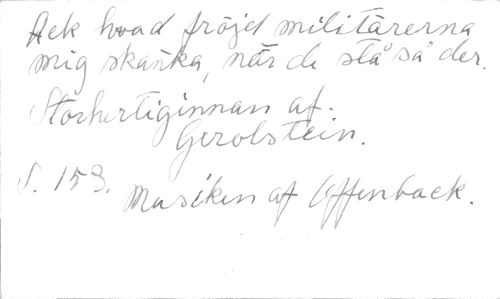 Ack hvad fröjd militärerna
mig skänka, når de stå så der.
Storhertiginnan af.
Gerolstein.
S. 153.
Musiken af Offenback.